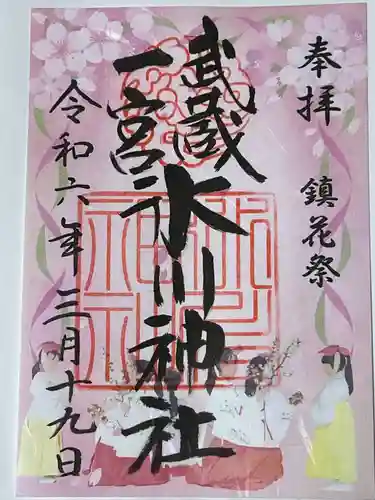 奉拝
鎮花祭
武蔵
一宮
氷川神社
令和六年三月十九日